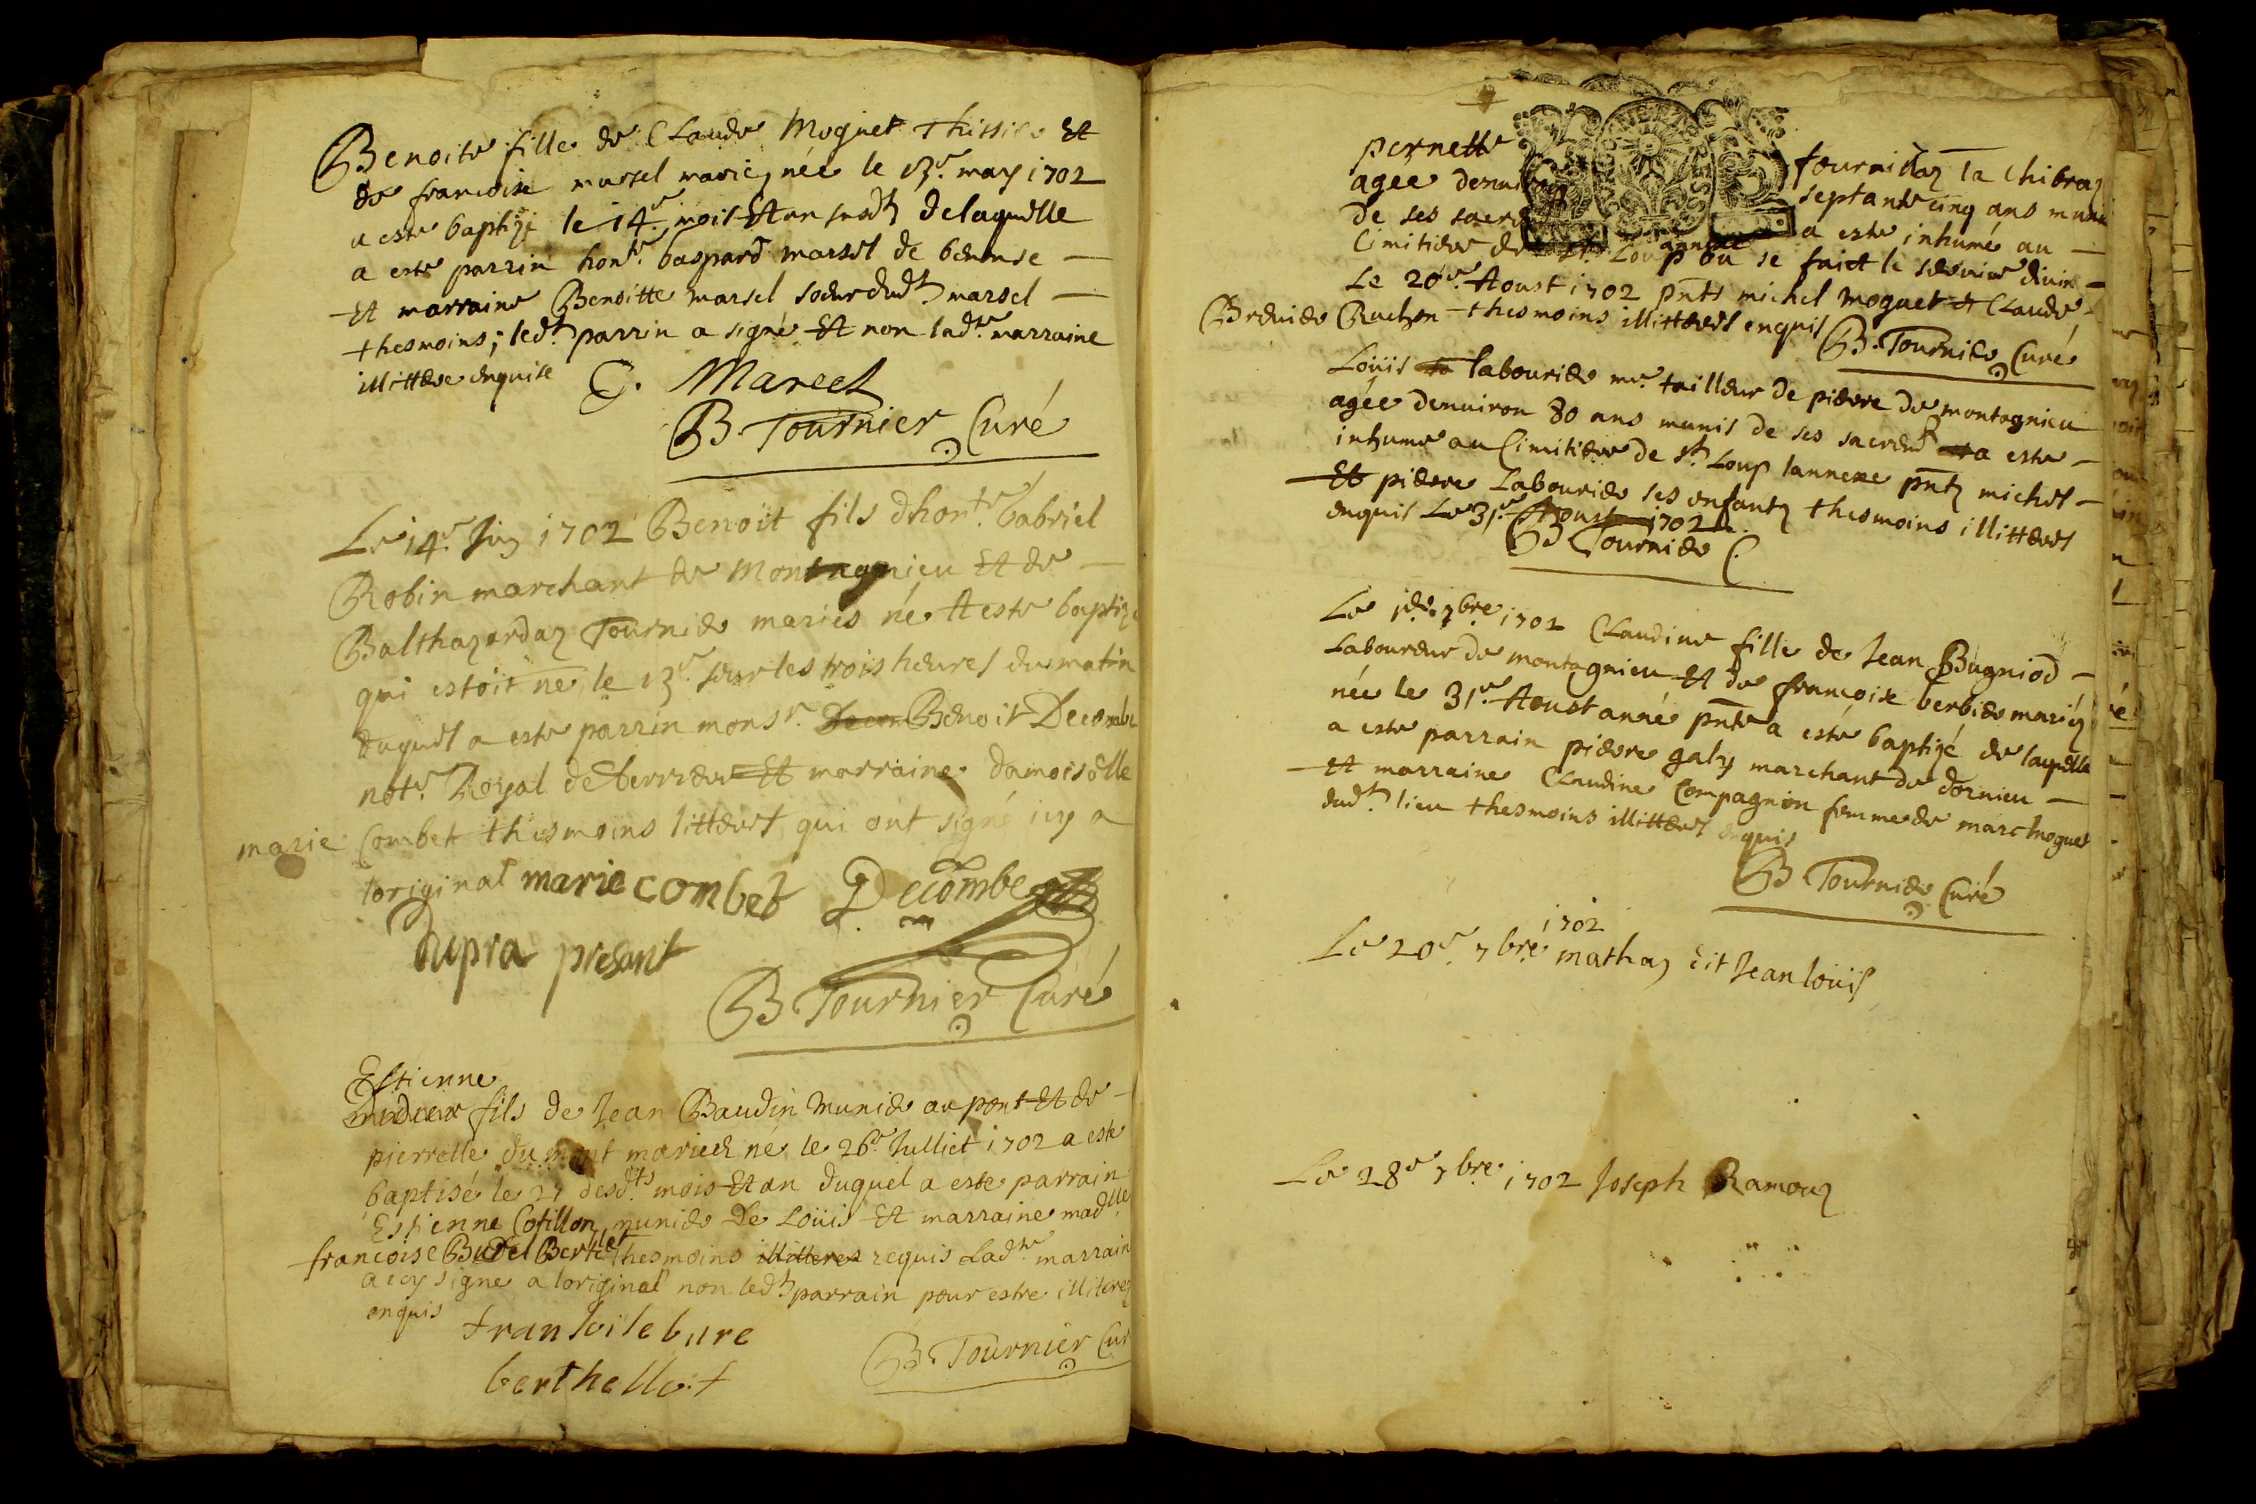 Benoite fille de Claude Moguet Thissier Et
de francoise marsel mariez née le 13e. may 1702
a este baptizé le 14e. mois Et an susdt delaquelle
a este parrin honte. gaspard marsel de benonse
Et marraine Benoitte marsel soeur dudt marsel
thesmoins; ledt parrin a signé Et non ladte marraine
illittere enquise
G. Marcel
B. Tournier Curé
Le 14e Juin 1702 Benoit fils dhonte. Gabriel
Robin marchant de Montagnieu Et de
Balthazarda Tournier mariés né A este baptizé
qui estoit né le 13e. sur les trois heures du matin
duquel a este parrin monsr. Benoit Decombe
note. Royal de Et marraine damoiselle
marie Combet thesmoins litteres qui ont signé icy a
loriginal marie combet Decombe
Dupra presant
B Tournier Curé
Estienne
fils de Jean Baudin munier au pont Et de
pierrette dumont mariez né le 26e. Julliet 1702 a este
baptisé le 27 desdts mois Et an duquel a este parrain
Estienne Cotillon munier De Loüis Et marraine madlle
francoise thesmoins illitteres requis Ladte marrain
a icy signe a loriginal non ledt parrain pour estre illiterez
enquis
fransoise bure
berthellot
B. Tournier Cur
pernette fournier la
agee denuiron septante cinq ans munie
de ses sacre a este inhumé au
Cimitiere de st Loup ou se faict le service divin
Le 20e. Aoust 1702 pnts michel Moguet et Claude
Ruchon thesmoins illitteres enquis
B. Tournier Curé
Loüis labourier mre. tailleur de pierre de montagnieu
agée denuiron 80 ans munis de ses sacremt a este
inhume au Cimitiere de st Loup lannexe pntz michel
Et pierre Labourier ses enfantz thesmoins illitteres
enquis Le 31e. Aoust 1702
B Tournier C.
Le 1er. 7bre. 1702 Claudine fille de Jean Bugniod
Laboureur de montagnieu Et de francoise berbier mariéz
née le 31e. Aoust année pnte a esté baptizé de laquelle
a este parrain pierre galy marchant de dornieu
Et marraine Claudine Compagnion femme de marc moguet
dudt lieu thesmoins illitteres enquis
B Tournier Curé
1702
Le 20e. 7bre. mathay dit Jean loüis
Le 28e 7bre. 1702 Joseph Ramouz